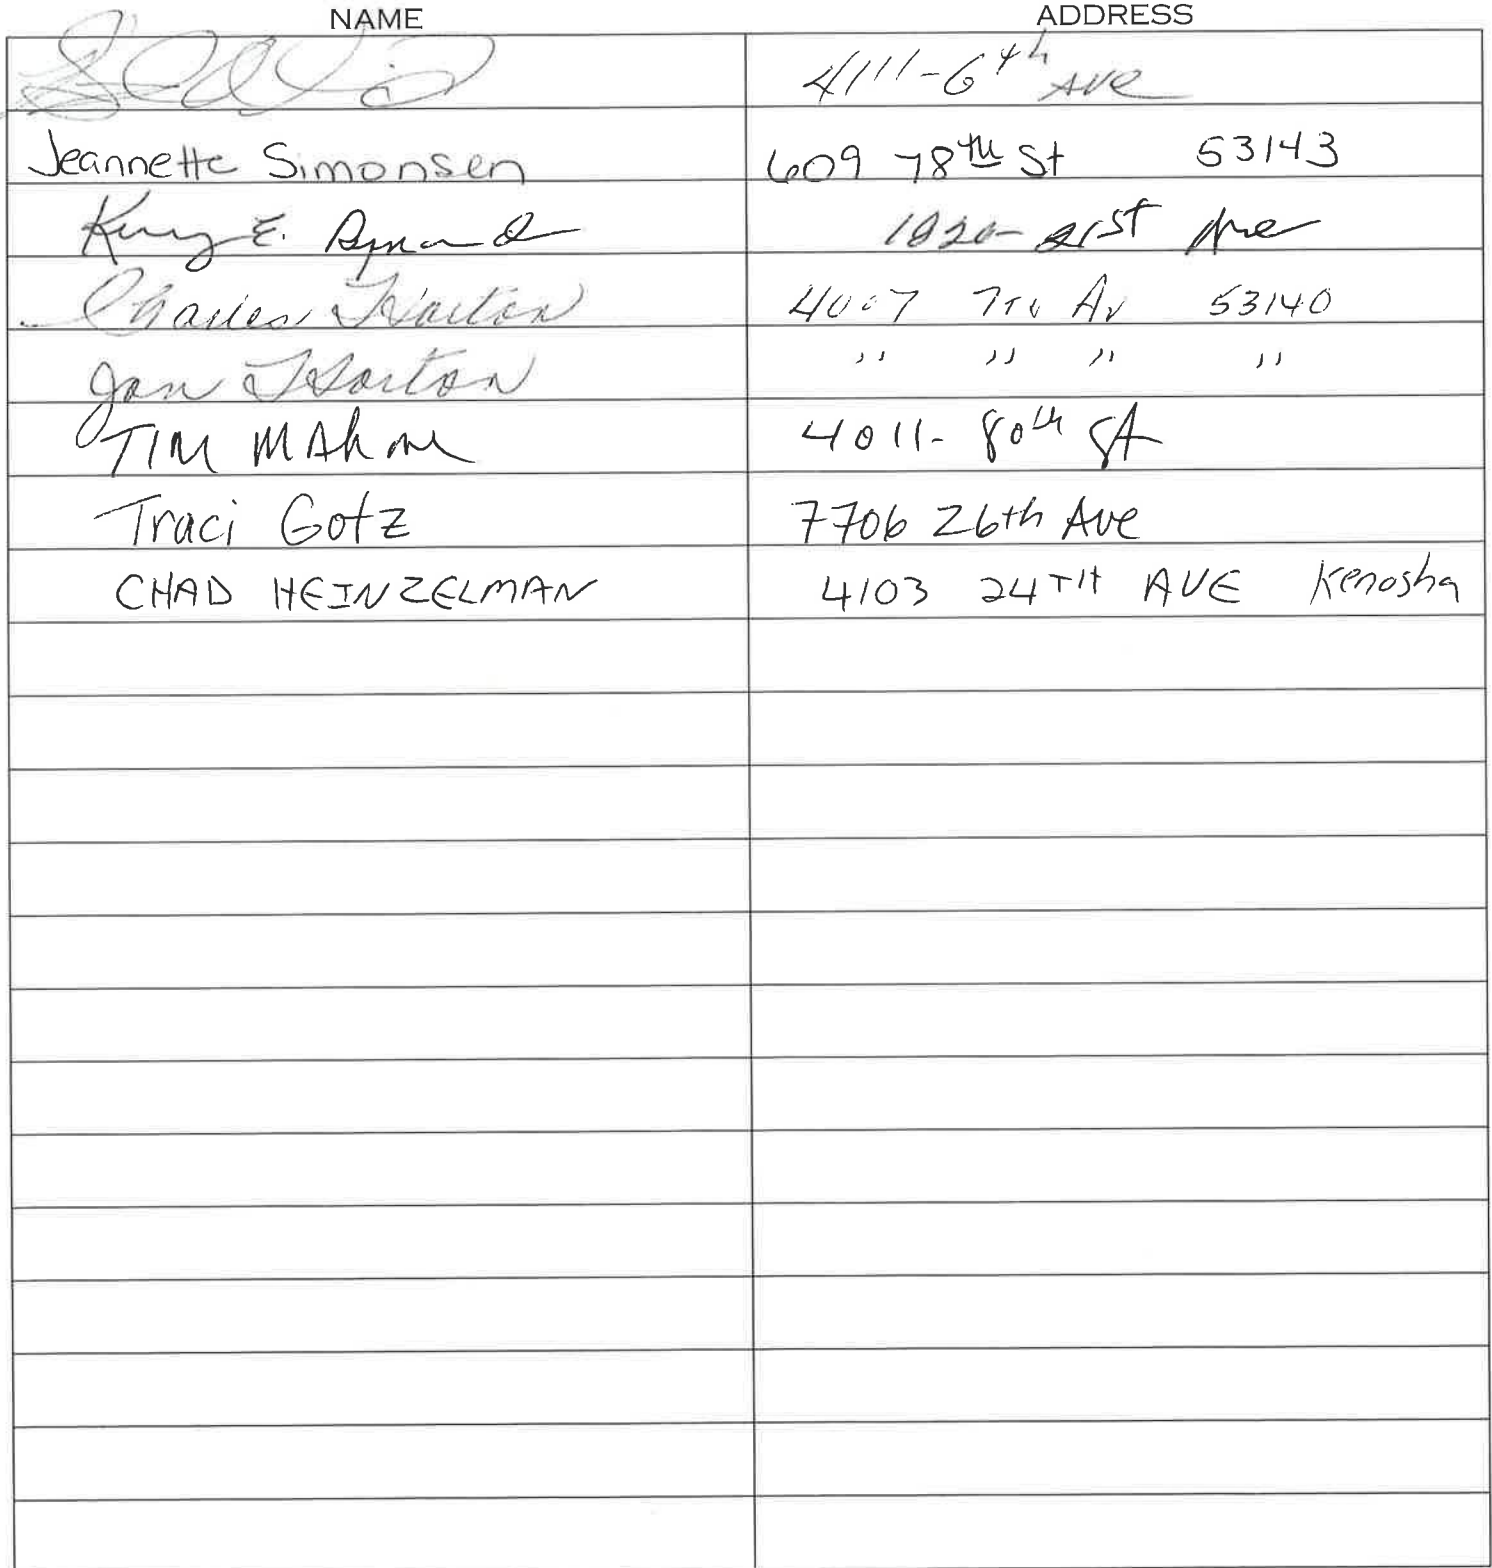 NAME ADDRESS
4111-6th Ave
Jeannette Simonsen 609 78th St 53143
E. 1820- 21st Ave
Charles Horton 4007 7TH Av 53140
Jan Horton " " " "
TIM MAhone 4011- 80th St
Traci Gotz 7706 26th Ave
CHAD HEINZELMAN 4103 24TH AVE Kenosha